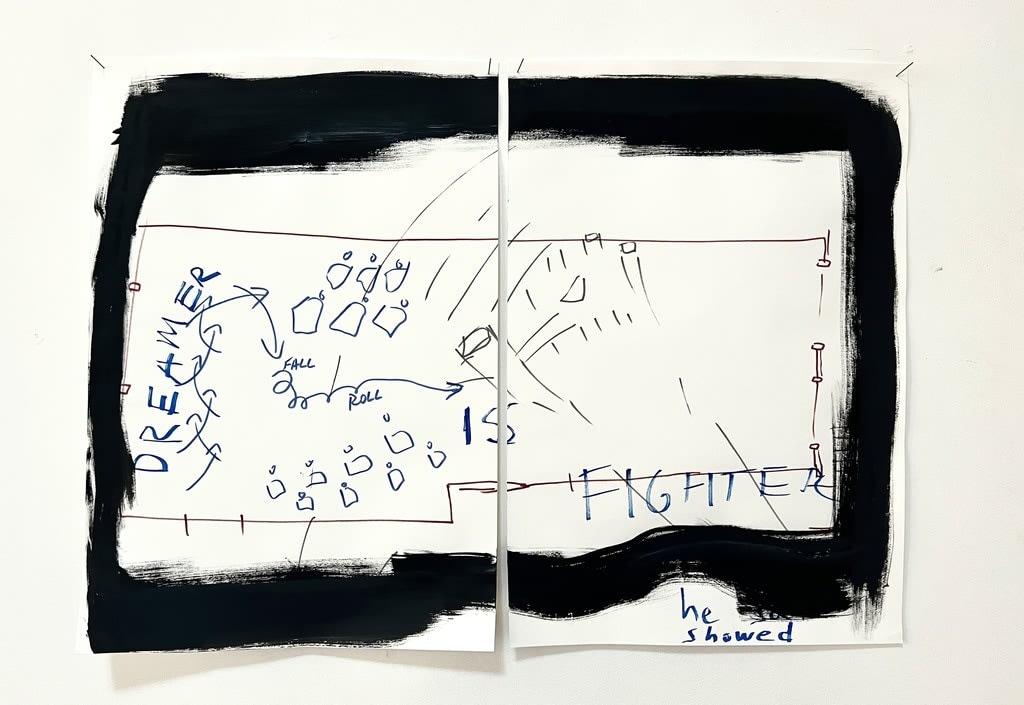 DREAMER
FALL
ROLL
IS
FIGHTER
he
showed